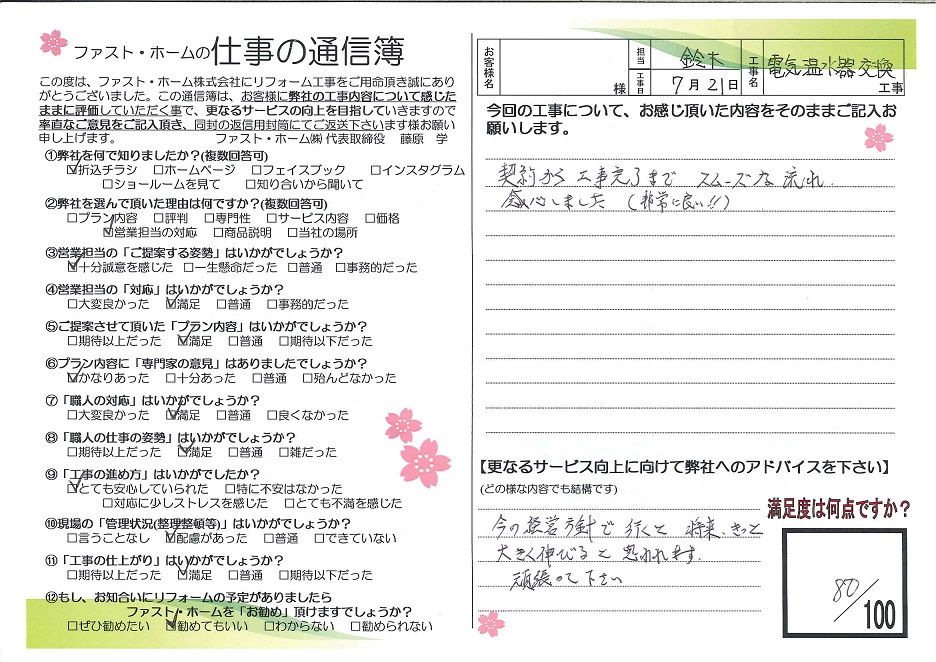 ファスト・ホームの仕事の通信簿
この度は、ファスト・ホーム株式会社にリフォーム工事をご用命頂き誠にあり
がとうございました。この通信簿は、お客様に弊社の工事内容について感じた
ままに評価していただく事で、更なるサービスの向上を目指していきますので
率直なご意見をご記入頂き、同封の返信用封筒にてご返送下さいます様お願い
申し上げます。 ファスト・ホーム㈱ 代表取締役 藤原 学
①弊社を何で知りましたか？(複数回答可)
☑折込チラシ □ホームページ □フェイスブック □インスタグラム
□ショールームを見て □知り合いから聞いて
②弊社を選んで頂いた理由は何ですか？(複数回答可)
□プラン内容 □評判 □専門性 □サービス内容 □価格
☑営業担当の対応 □商品説明 □当社の場所
③営業担当の「ご提案する姿勢」はいかがでしょうか？
☑十分誠意を感じた □一生懸命だった □普通 □事務的だった
④営業担当の「対応」はいかがでしょうか？
□大変良かった ☑満足 □普通 □事務的だった
⑤ご提案させて頂いた「プラン内容」はいかがでしょうか？
□期待以上だった ☑満足 □普通 □期待以下だった
⑥プラン内容に「専門家の意見」はありましたでしょうか？
☑かなりあった □十分あった □普通 □殆んどなかった
⑦「職人の対応」はいかがでしょうか？
□大変良かった ☑満足 □普通 □良くなかった
⑧「職人の仕事の姿勢」はいかがでしょうか？
□期待以上だった ☑満足 □普通 □雑だった
⑨「工事の進め方」はいかがでしたか？
☑とても安心していられた □特に不安はなかった
□対応に少しストレスを感じた □とても不満を感じた
⑩現場の「管理状況(整理整頓等)」はいかがでしょうか？
□言うことなし ☑配慮があった □普通 □できていない
⑪「工事の仕上がり」はいかがでしょうか？
□期待以上だった ☑満足 □普通 □期待以下だった
⑫もし、お知合いにリフォームの予定がありましたら
ファスト・ホームを「お勧め」頂けますでしょうか？
□ぜひ勧めたい ☑勧めてもいい □わからない □勧められない
お客様名 様 担当 鈴木 工事日 7月21日 工事名 電気温水器交換 工事
今回の工事について、お感じ頂いた内容をそのままご記入お
願いします。
契約から工事完了まで スムーズな流れ、
感心しました （非常に良い!!）
【更なるサービス向上に向けて弊社へのアドバイスを下さい】
(どの様な内容でも結構です)
今の経営方針で行くと 将来、きっと
大きく伸びると思われます。
頑張って下さい
満足度は何点ですか？
80/100